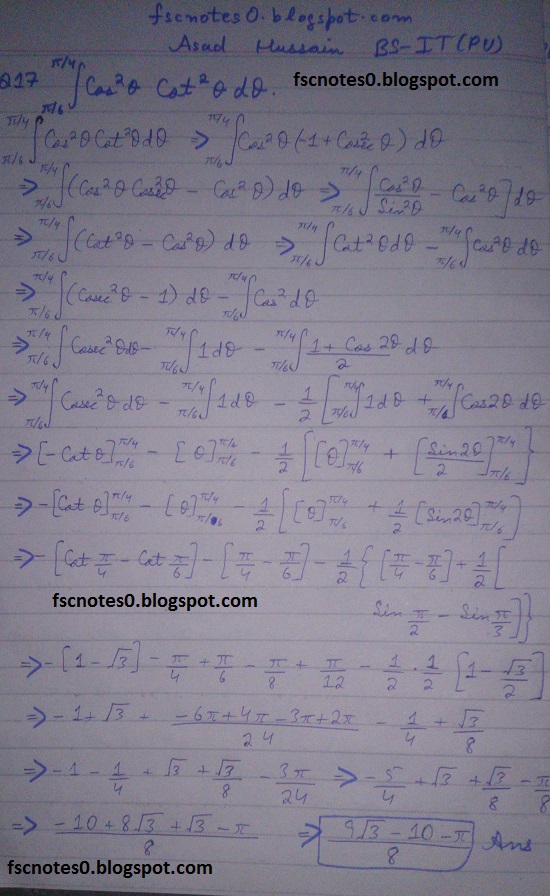 fscnotes0.blogspot.com
Asad Hussain BS-IT(PU)
Q17 π/6∫π/4 Cos²θ Cot²θ dθ.
fscnotes0.blogspot.com
π/6∫π/4 Cos²θ Cot²θ dθ ⇒ π/6∫π/4 Cos²θ (-1 + Cosec²θ) dθ
⇒ π/6∫π/4 (Cos²θ Cosec²θ - Cos²θ) dθ ⇒ π/6∫π/4 [Cos²θ/Sin²θ - Cos²θ] dθ
⇒ π/6∫π/4 (Cot²θ - Cos²θ) dθ ⇒ π/6∫π/4 Cot²θ dθ - π/6∫π/4 Cos²θ dθ
⇒ π/6∫π/4 (Cosec²θ - 1) dθ - π/6∫π/4 Cos² dθ
⇒ π/6∫π/4 Cosec²θ dθ - π/6∫π/4 1 dθ - π/6∫π/4 (1 + Cos 2θ)/2 dθ
⇒ π/6∫π/4 Cosec²θ dθ - π/6∫π/4 1 dθ - 1/2 [π/6∫π/4 1 dθ + π/6∫π/4 Cos2θ dθ
⇒ [-Cot θ]π/6 π/4 - [θ]π/6 π/4 - 1/2 [[θ]π/6 π/4 + [Sin2θ/2]π/6 π/4]
⇒ -[Cot θ]π/6 π/4 - [θ]π/6 π/4 - 1/2 [[θ]π/6 π/4 + 1/2 [Sin2θ]π/6 π/4]
⇒ -[Cot π/4 - Cot π/6] - [π/4 - π/6] - 1/2 {[π/4 - π/6] + 1/2 [
fscnotes0.blogspot.com
Sin π/2 - Sin π/3]}
⇒ -[1 - √3] - π/4 + π/6 - π/8 + π/12 - 1/2 . 1/2 [1 - √3/2]
⇒ -1 + √3 + (-6π + 4π - 3π + 2π)/24 - 1/4 + √3/8
⇒ -1 - 1/4 + √3 + √3/8 - 3π/24 ⇒ -5/4 + √3 + √3/8 - π/8
⇒ (-10 + 8√3 + √3 - π)/8 ⇒ (9√3 - 10 - π)/8 Ans
fscnotes0.blogspot.com